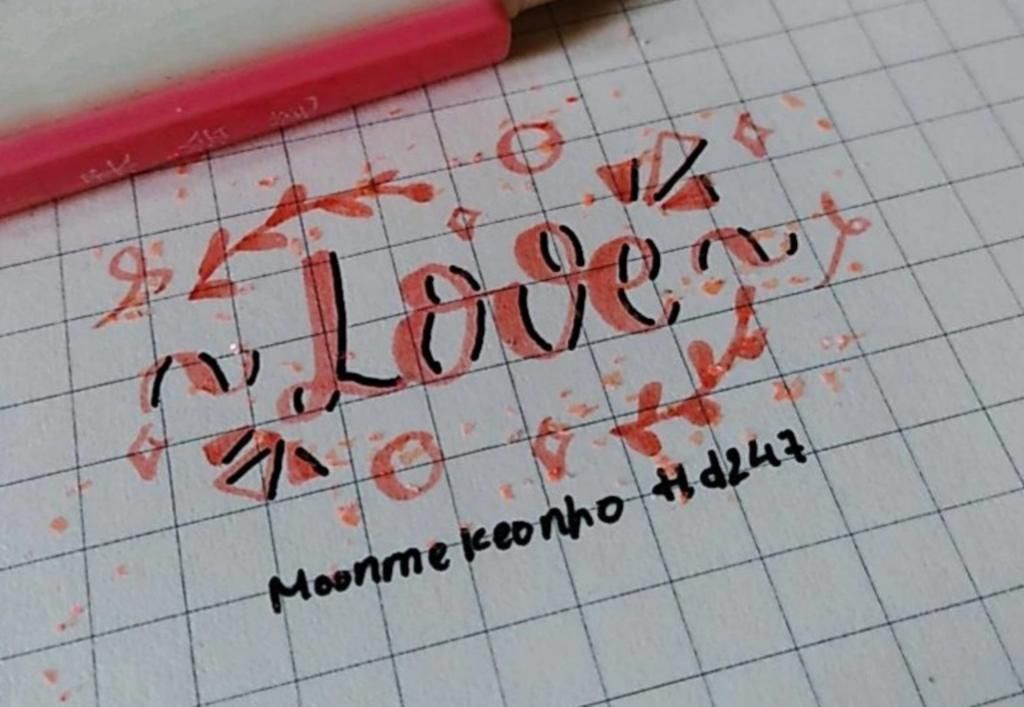 Love
Moonmekeonho Hd247